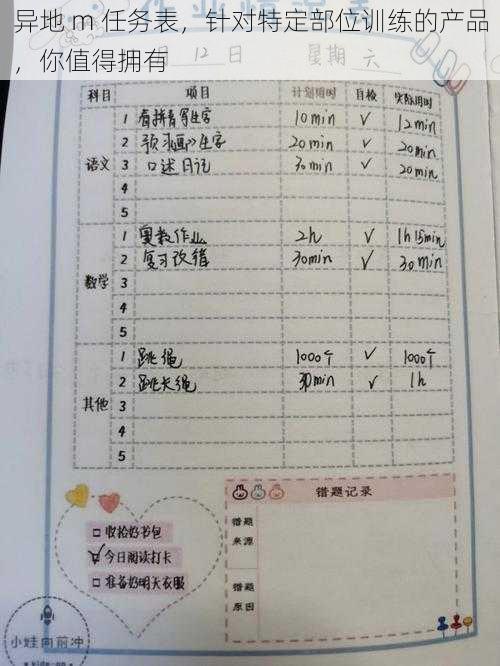 异地 m 任务表，针对特定部位训练的产品
，你值得拥有
月 12 日 星期 六
科目 项目 计划用时 自检 实际用时
语文
1 看拼音写生字 10min √ 12min
2 预习画》生字 20min √ 20min
3 口述日记 30min √ 20min
4
5
数学
1 奥数作业 2h √ 1h15min
2 复习改错 30min √ 30min
3
4
5
其他
1 跳绳 1000个 √ 1000个
2 跳长绳 30min √ 1h
3
4
5
错题记录
错题
来源
错题
原因
收拾好书包
√ 今日阅读打卡
准备好明天衣服
小娃向前冲